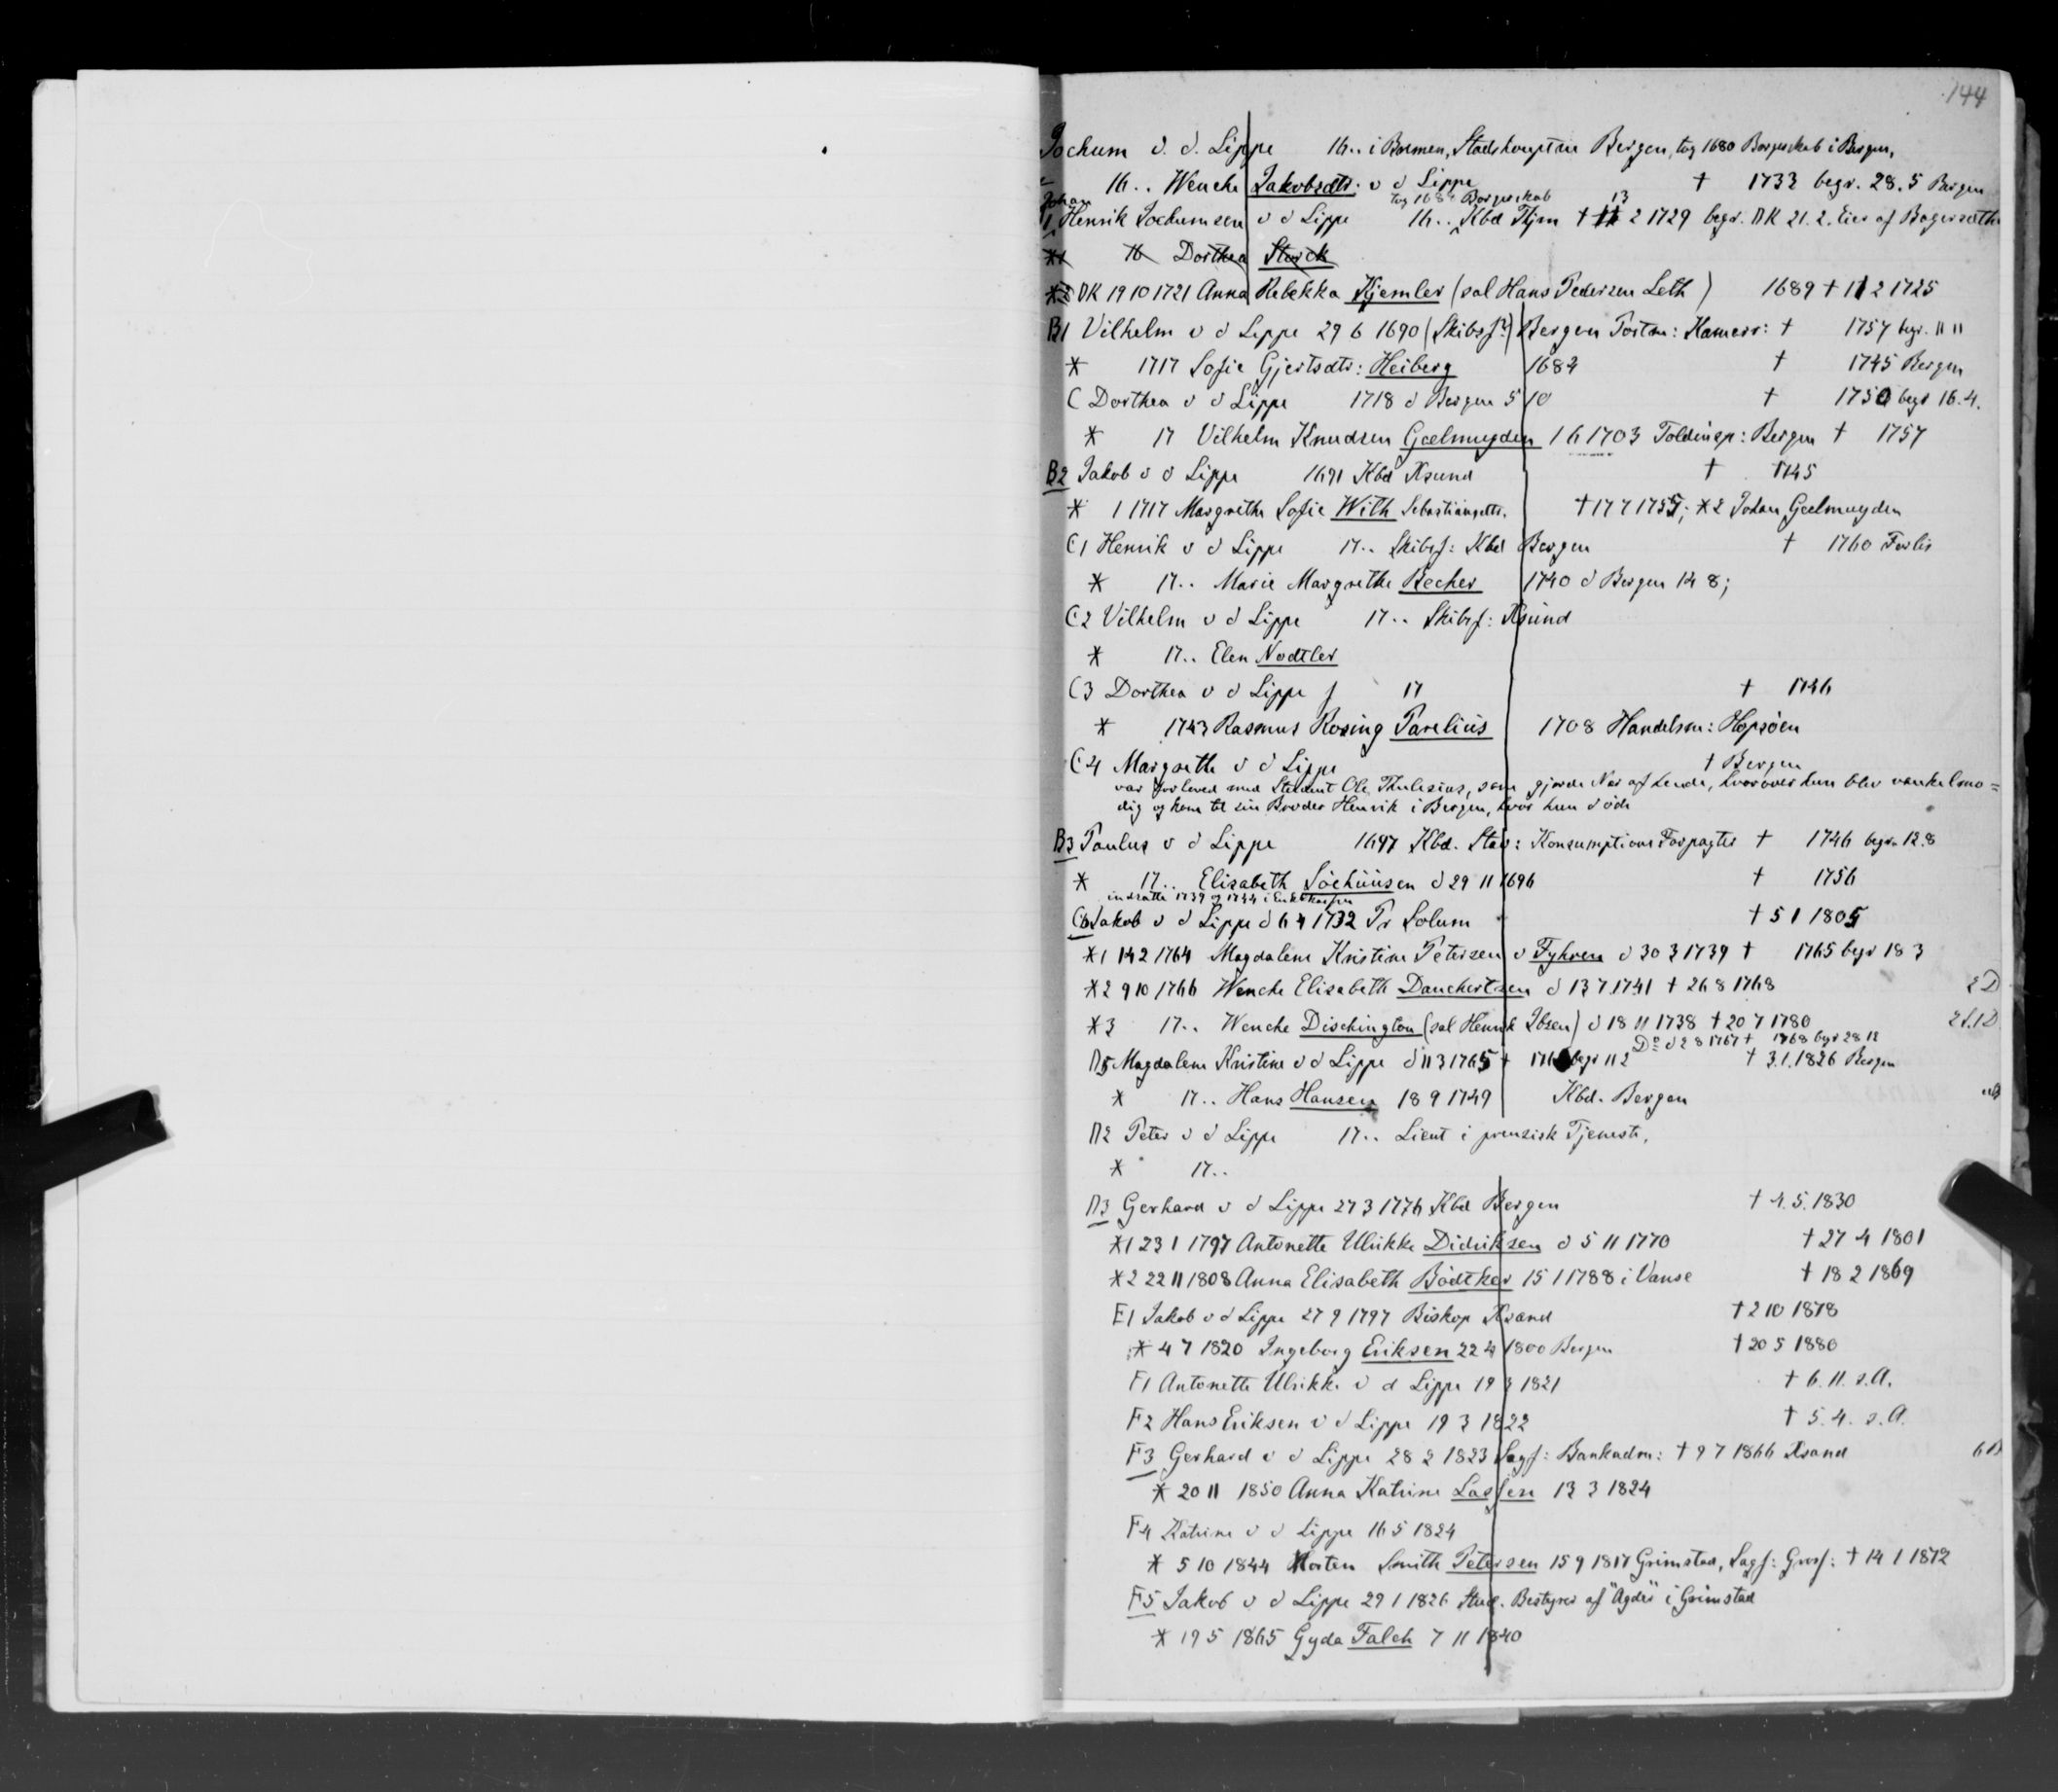 144
Jochum v. d. Lippe 16.. i Bremen, Stadshauptm Bergen, tog 1680 Borgerskab i Bergen,
16.. Wenche Jakobsdtr. v d Lippe † 1733 begr. 28.5 Bergen
Johan tog 1684 Borgerskab 13
1 Henrik Jochumsen v d Lippe 16.. Kbd Thjm † 11 2 1729 begr. DK 21.2. Eier af
*1 16 Dorthea Storck
*2 DK 19 10 1721 Anna Rebekka Kjemler (sal Hans Pedersen Leth) 1689 † 11 2 1725
B1 Vilhelm v d Lippe 29 6 1690 (Skibsf?) Bergen Postm: Kamerr: † 1757 begr. 11 11
* 1717 Sofie Gjertsdtr: Heiberg 1684 † 1745 Bergen
C Dorthea v d Lippe 1718 d Bergen 5 10 † 1750 begr 16.4.
* 17 Vilhelm Knudsen Geelmuyden 1 6 1703 Toldinsp: Bergen † 1757
B2 Jakob v d Lippe 1691 Kbd Ksund † 1745
* 1 1717 Margrethe Sofie With Sebastiansdtr. † 17 7 1755; *2 Johan Geelmuyden
C1 Henrik v d Lippe 17.. Skibsf: Kbd Bergen † 1760 Forlis
* 17.. Marie Margrethe Becher 1740 d Bergen 14 8;
C2 Vilhelm v d Lippe 17.. Skibsf: Ksund
* 17.. Elen Nodtler
C3 Dorthea v d Lippe f 17 † 1746
* 1743 Rasmus Rosing Parelius 1708 Handelsm: Hopsöen
C4 Margrethe v d Lippe † Bergen
var forlovet med Student Ole Thulesius, som gjorde Nar af hende, hvorover hun blev vankelmo=
dig og kom til sin Broder Henrik i Bergen, hvor hun döde
B3 Paulus v d Lippe 1697 Kbd. Stav: Konsumptions Forpagter † 1746 begr. 12.8
* 17.. Elizabeth Söchüüsen d 29 11 1696 † 1756
indsatte 1739 og 1744 i Enkekassen
C6 Jakob v d Lippe d 6 4 1732 Pr Solum † 5 1 1805
*1 14 2 1764 Magdalene Kristine Petersen v Fyhren d 30 3 1739 † 1765 begr 18 3
*2 9 10 1766 Wenche Elisabeth Danchertsen d 13 7 1741 † 26 8 1768 2 D
*3 17.. Wenche Dischington (sal Henrik Ibsen) d 18 11 1738 † 20 7 1780 2 S. 1 D
Do d 2 8 1767 † 1768 begr 28 12
D5 Magdalene Kristine v d Lippe d 11 3 1765 † begr 11 2 † 3.1.1826 Bergen
* 17.. Hans Hansen 18 9 1749 Kbd. Bergen
D2 Peter v d Lippe 17.. Lieut i preusisk Tjeneste,
* 17..
D3 Gerhard v d Lippe 27 3 1776 Kbd Bergen † 4.5.1830
*1 23 1 1797 Antonette Ulrikke Didriksen d 5 11 1770 † 27 4 1801
*2 22 11 1808 Anna Elisabeth Bödtker 15 1 1788 i Vanse † 18 2 1869
E1 Jakob v d Lippe 27 9 1797 Biskop Ksand † 2 10 1878
* 4 7 1820 Ingeborg Eriksen 22 4 1800 Bergen † 20 5 1880
F1 Antonette Ulrikke v d Lippe 19 3 1821 † 6.11. s.A.
F2 Hans Eriksen v d Lippe 19 3 1822 † 5.4. s.A.
F3 Gerhard v d Lippe 28 2 1823 Sagf: Bankadm: † 9 7 1866 Ksand 6 B
* 20 11 1850 Anna Katrine Lassen 13 3 1824
F4 Katrine v d Lippe 16 5 1824
* 5 10 1844 Morten Smith Petersen 15 9 1817 Grimstad, Sagf: Gross: † 14 1 1872
F5 Jakob v d Lippe 29 1 1826 Stud. Bestyrer af "Agder" i Grimstad
* 19 5 1865 Gyda Falch 7 11 1840